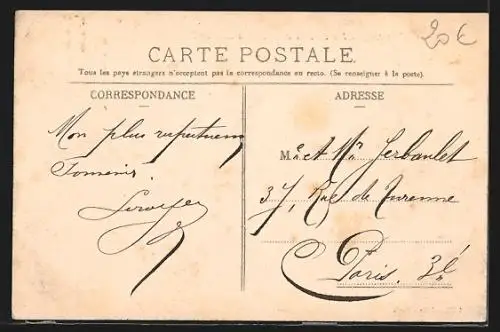 20€
CARTE POSTALE
Tous les pays étrangers n'acceptent pas la correspondance au recto. (Se renseigner à la poste).
CORRESPONDANCE
ADRESSE
Mon plus respectueux
Souvenir
Me et Mr
37, Rue de Turenne
Paris. 3è